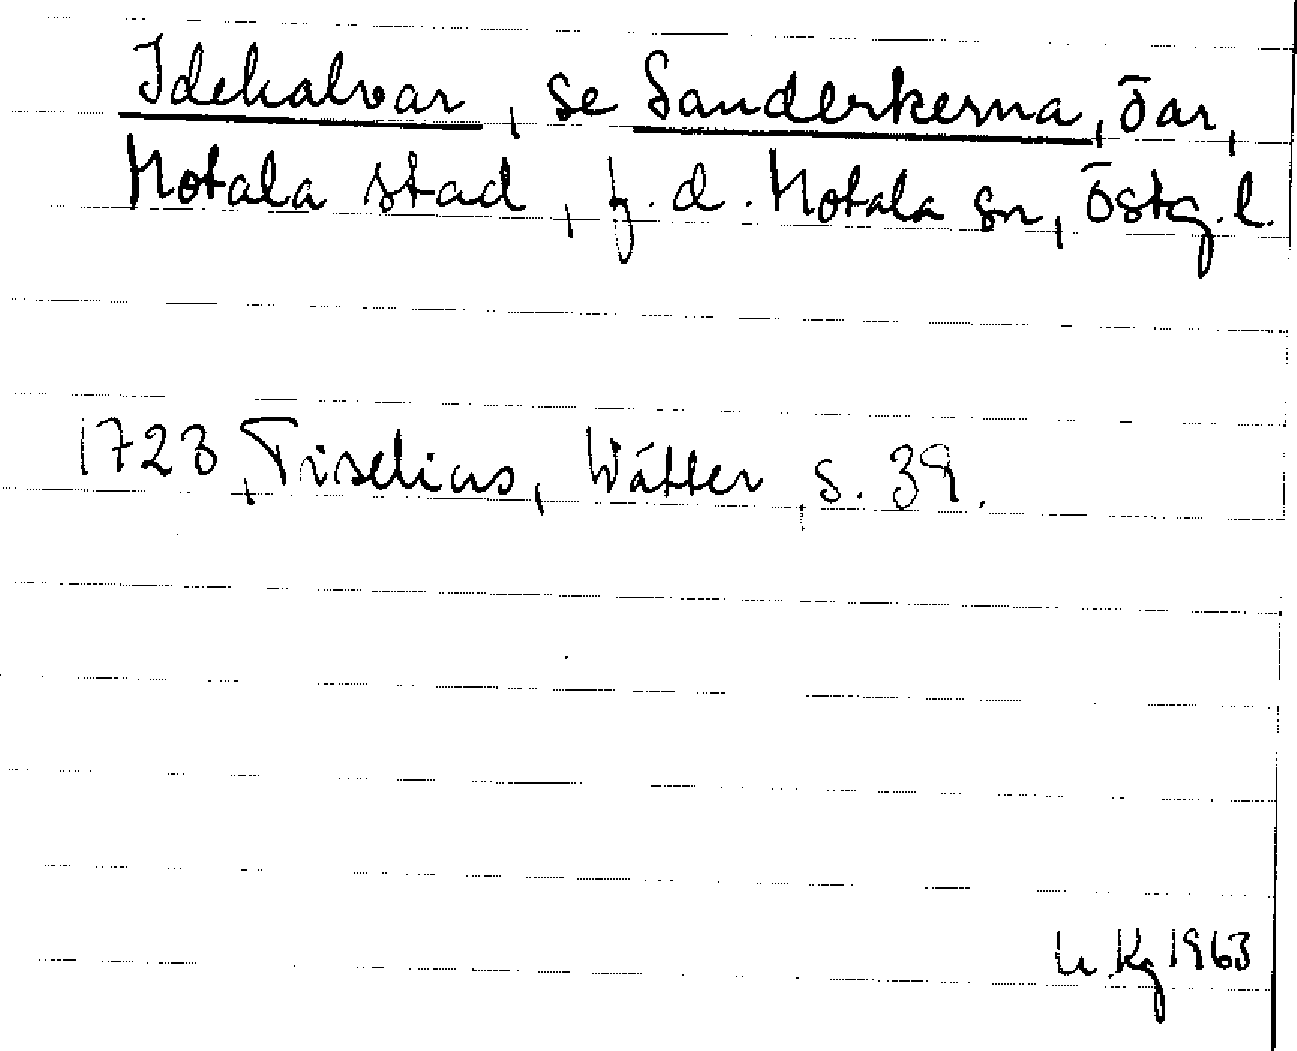 Idekalvar, se Sanderkerna, öar,
Motala stad, f.d. Motala sn, Östg.l.
1723, Tiselius, Wätter, s. 39.
Kg 1963